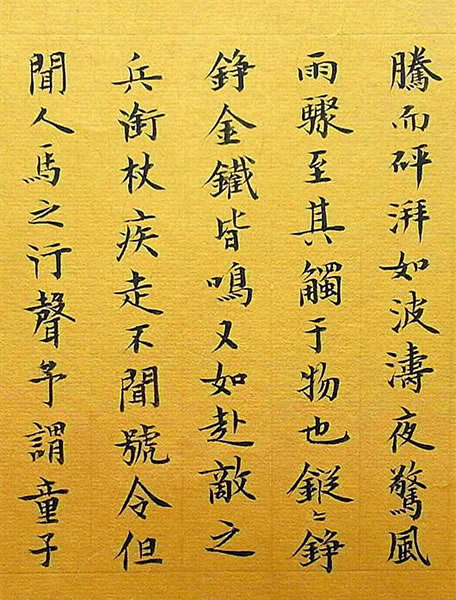 騰而砰湃如波濤夜驚風
雨驟至其觸于物也鏦〻錚
錚金鐵皆鳴又如赴敵之
兵銜杖疾走不聞號令但
聞人馬之行聲予謂童子